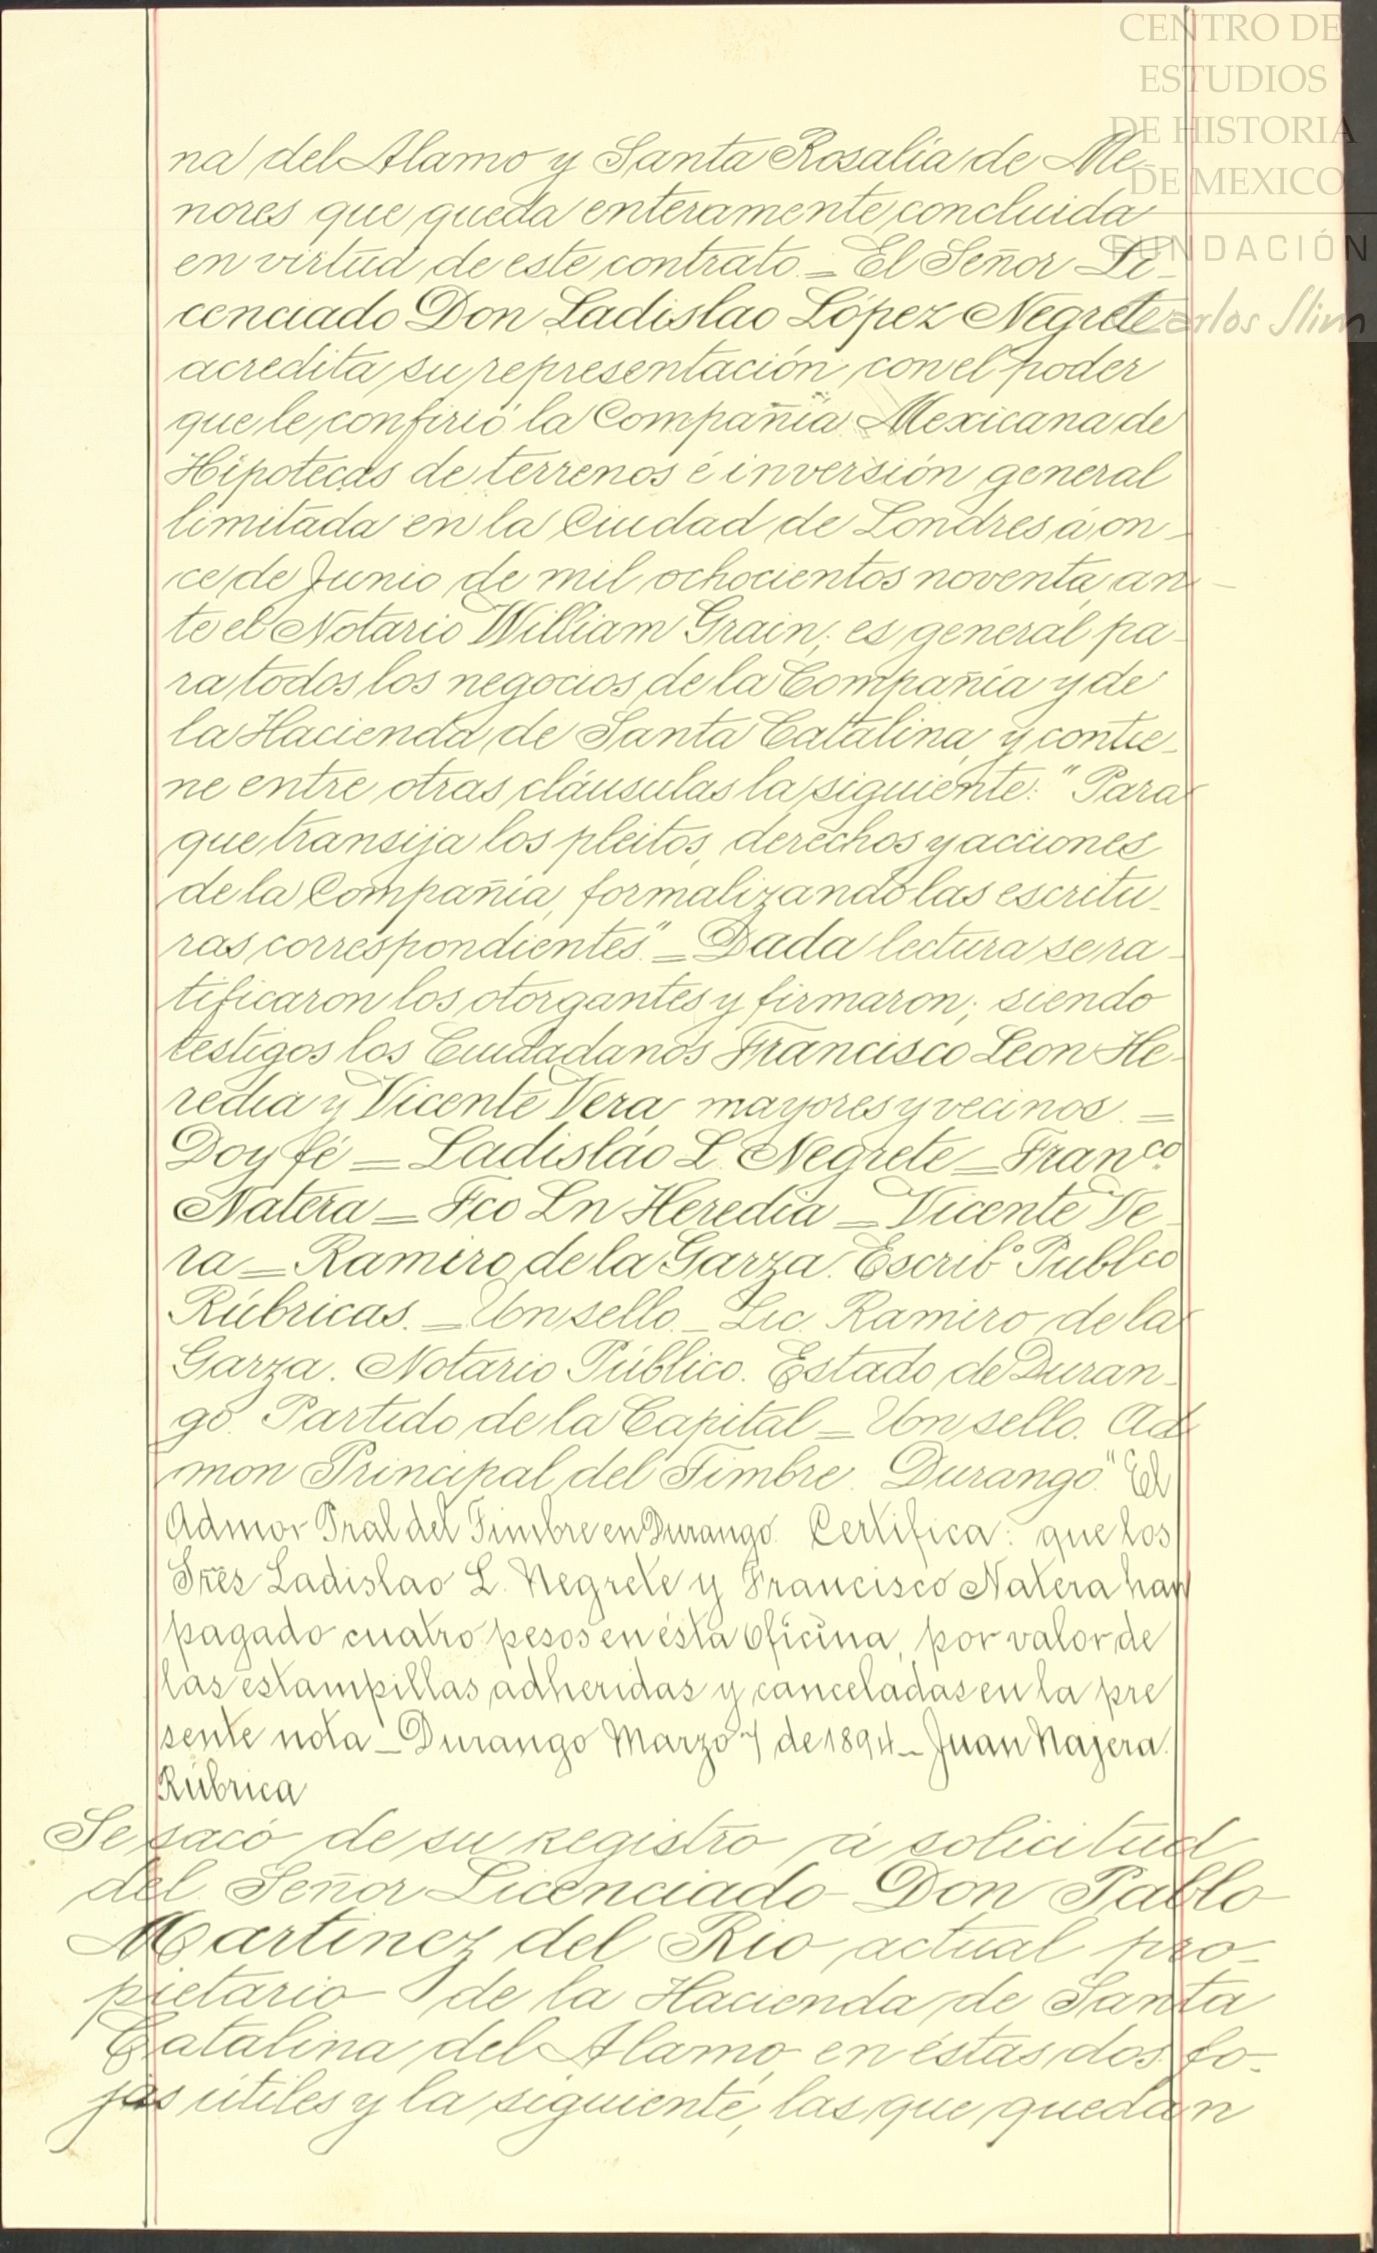 CENTRO DE
ESTUDIOS
DE HISTORIA
DE MEXICO
FUNDACIÓN
Carlos Slim
na del Alamo y Santa Rosalía de Me-
nores que queda enteramente concluida
en virtud de este contrato. = El Señor Li-
cenciado Don Ladislao López Negrete
acredita su representación con el poder
que le confirió la Compañía Mexicana de
Hipotecas de terrenos é inversión general
limitada en la Ciudad de Londres á on-
ce de Junio de mil ochocientos noventa, an-
te el Notario William Grain; es general pa-
ra todos los negocios de la Compañía y de
la Hacienda de Santa Catalina, y contie-
ne entre otras cláusulas la siguiente: "Para
que transija los pleitos, derechos y acciones
de la Compañía, formalizando las escritu-
ras correspondientes." = Dada lectura se ra-
tificaron los otorgantes y firmaron; siendo
testigos los Ciudadanos Francisco Leon He-
redia y Vicente Vera, mayores y vecinos. =
Doy fé = Ladisláo L. Negrete = Franco.
Natera = Fco Ln Heredia = Vicente Ve-
ra = Ramiro de la Garza. Escribo Publco
Rúbricas. = Un sello. = Lic. Ramiro de la
Garza. Notario Público. Estado de Duran-
go. Partido de la Capital = Un sello. Ad
mon Principal del Timbre. Durango." El
Admor Pral del Timbre en Durango. Certifica: que los
Sres Ladislao L. Negrete y Francisco Natera han
pagado cuatro pesos en ésta Oficina, por valor de
las estampillas adheridas y canceladas en la pre
sente nota = Durango Marzo 7 de 1894 = Juan Najera.
Rúbrica
Se sacó de su registro á solicitud
del Señor Licenciado Don Pablo
Martinez del Rio actual pro-
pietario de la Hacienda de Santa
Catalina del Alamo, en éstas dos fo-
jas útiles y la siguiente, las que quedan